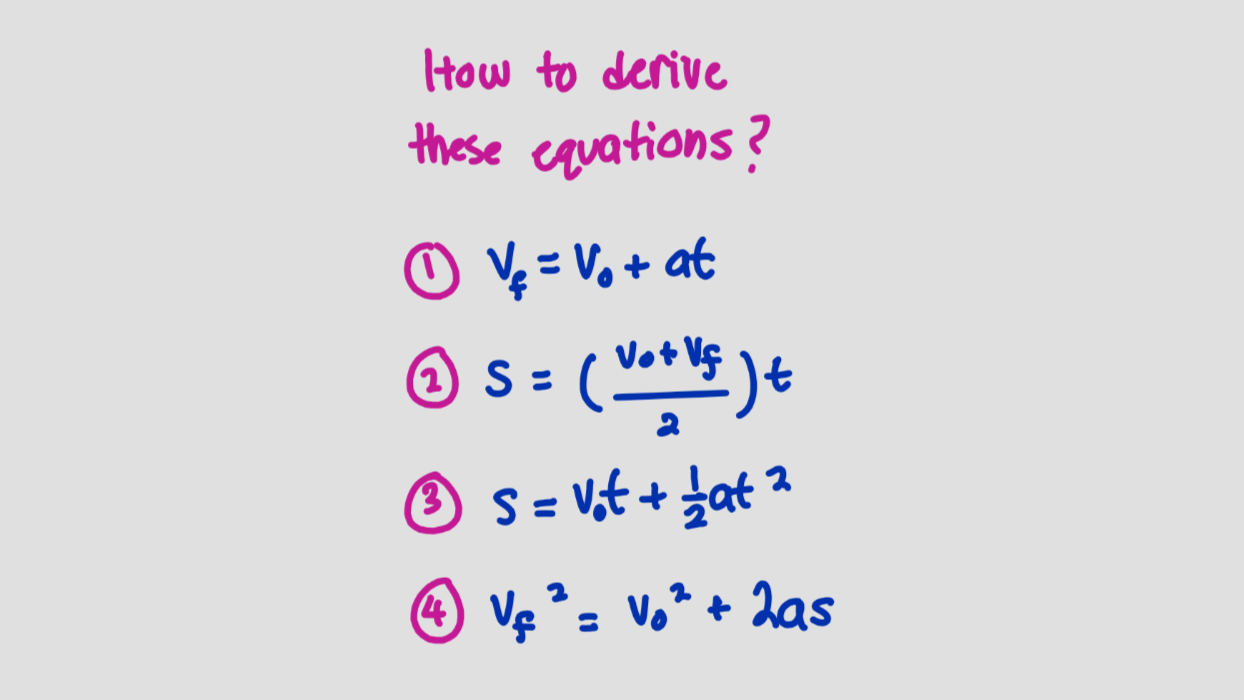 How to derive
these equations?
① V_f = V₀ + at
② S = ( (V₀ + V_f) / 2 ) t
③ S = V₀t + ½at²
④ V_f² = V₀² + 2as